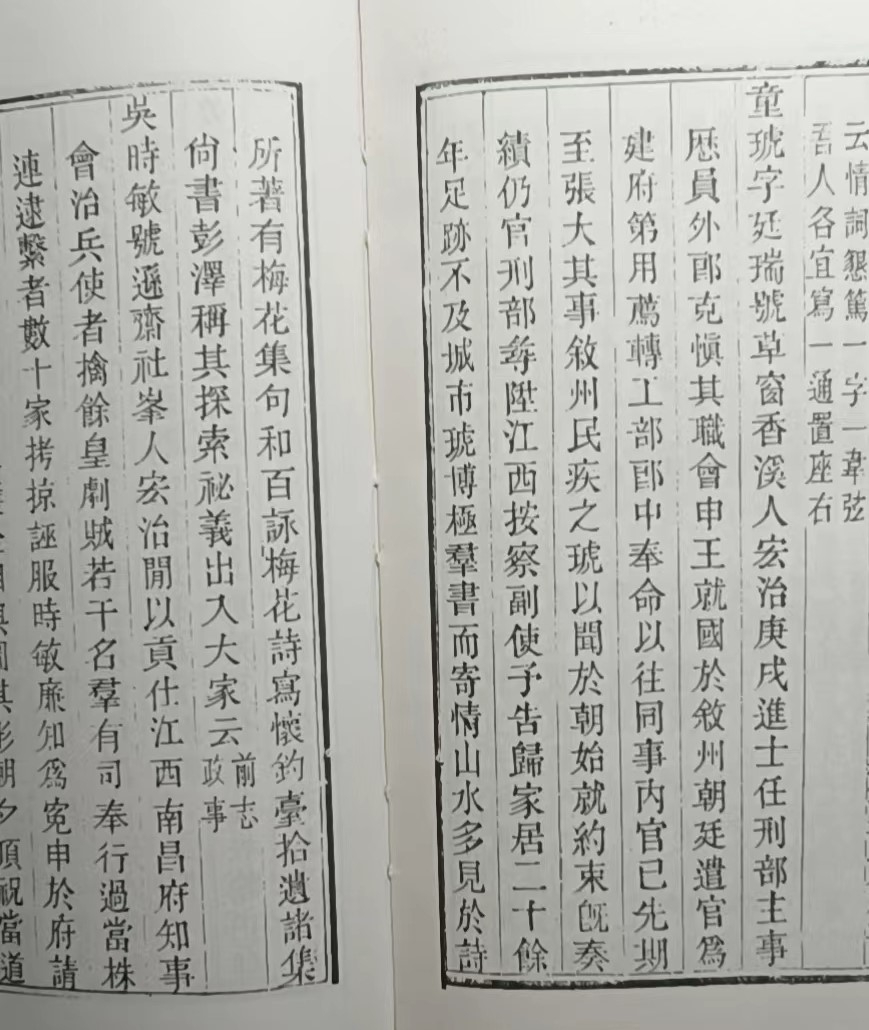 云情詞懇篤一字一韋弦
吾人各宜寫一通置座右
童琥字廷瑞號草窗香溪人宏治庚戌進士任刑部主事
歷員外郎克愼其職會申王就國於敘州朝廷遣官爲
建府第用薦轉工部郎中奉命以往同事內官已先期
至張大其事敘州民疾之琥以聞於朝始就約束旣奏
績仍官刑部尋陞江西按察副使予告歸家居二十餘
年足跡不及城市琥博極羣書而寄情山水多見於詩
所著有梅花集句和百詠梅花詩寫懷釣臺拾遺諸集
尙書彭澤稱其探索祕義出入大家云前志
政事
吳時敏號遜齋社峯人宏治閒以貢仕江西南昌府知事
會治兵使者擒餘皇劇賊若干名羣有司奉行過當株
連逮繫者數十家拷掠誣服時敏廉知爲寃申於府請
朝夕頂祝當道